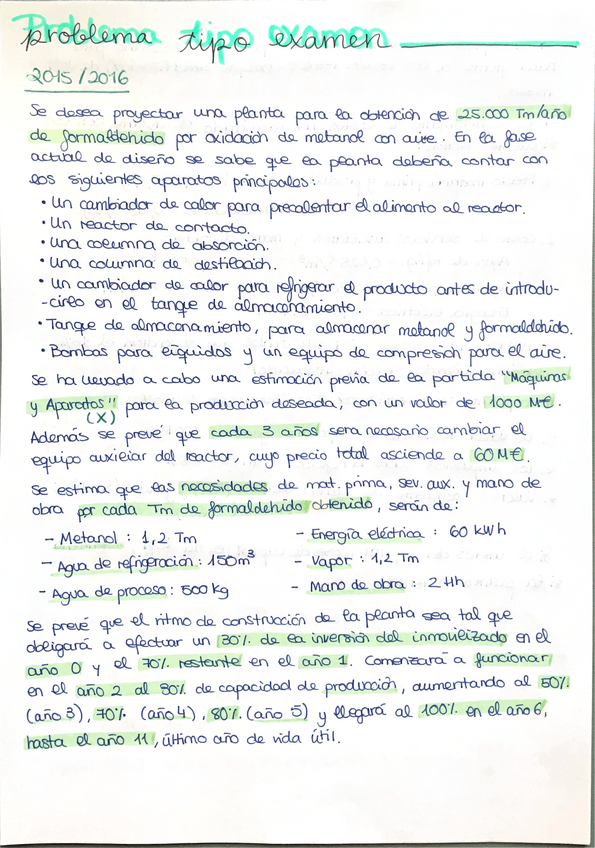 Problema tipo examen
problema tipo examen
2015/2016
Se desea proyectar una planta para la obtención de 25.000 Tm/año
de formaldehido por oxidación de metanol con aire. En la fase
actual de diseño se sabe que la planta debería contar con
los siguientes aparatos principales:
• Un cambiador de calor para precalentar el alimento al reactor.
• Un reactor de contacto.
• Una columna de absorción.
• Una columna de destilación.
• Un cambiador de calor para refrigerar el producto antes de introdu-
-cirlo en el tanque de almacenamiento.
• Tanque de almacenamiento, para almacenar metanol y formaldehido.
• Bombas para líquidos y un equipo de compresión para el aire.
Se ha llevado a cabo una estimación previa de la partida "Máquinas
y Aparatos" para la producción deseada, con un valor de 1000 M€.
(X)
Además se prevé que cada 3 años sera necesario cambiar el
equipo auxiliar del reactor, cuyo precio total asciende a 60 M€.
Se estima que las necesidades de mat. prima, sev. aux. y mano de
obra por cada Tm de formaldehido obtenido, serán de:
- Metanol : 1,2 Tm
- Energía eléctrica : 60 kWh
- Agua de refrigeración : 150 m³
- Vapor : 1,2 Tm
- Agua de proceso : 500 kg
- Mano de obra : 2 Hh
Se prevé que el ritmo de construcción de la planta sea tal que
obligará a efectuar un 30% de la inversión del inmovilizado en el
año 0 y el 70% restante en el año 1. Comenzará a funcionar
en el año 2 al 30% de capacidad de producción, aumentando al 50%
(año 3), 70% (año 4), 80% (año 5) y llegará al 100% en el año 6,
hasta el año 11, último año de vida útil.